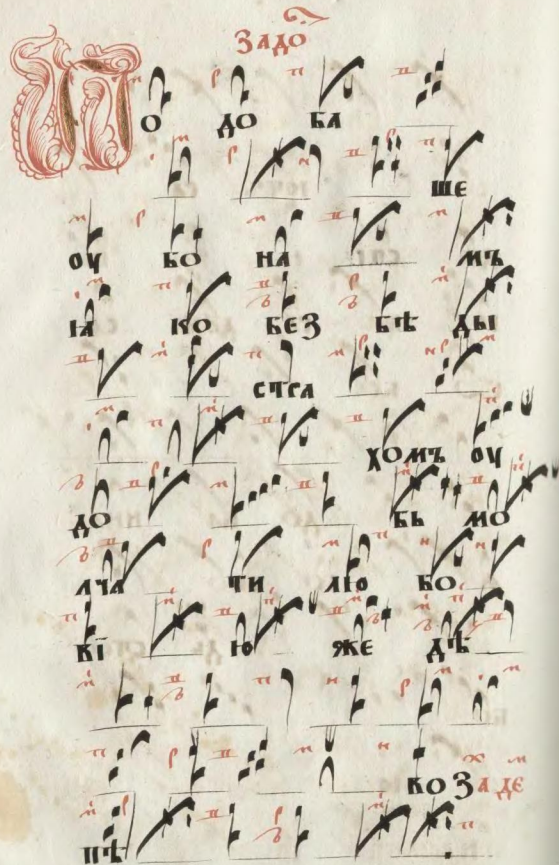 ЗАДО
П О ДО БА
ШЕ
ОУ БО НА МЪ
ІА КО БЕЗ БѢ ДЫ
СТРА
ХОМЪ ОУ
ДО БЬ МО
ЛЧА ТИ ЛЮ БО
ВЇ Ю ЖЕ ДѢ
ВО З А ДЕ
ПѢ